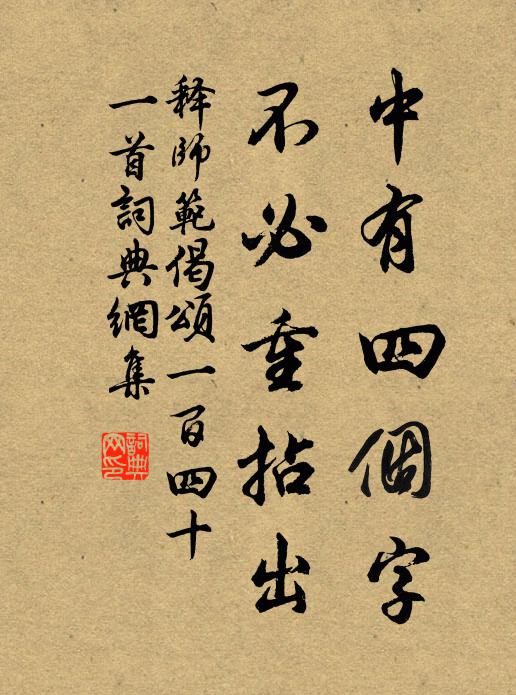 中有四個字
不必重拈出
释師範偈頌一百四十
一首詞典網集
詞典
网印